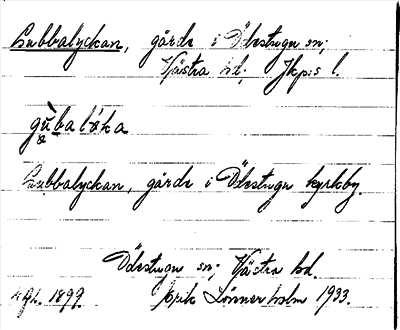 Gubbalyckan, gärde i Ödestugu sn;
Västra hd; Jkp:s l.
gu̠balika
Gubbalyckan, gärde i Ödestugu kyrkby.
Ödestugu sn; Västra hd.
1899. Erik Lönnerholm 1933.